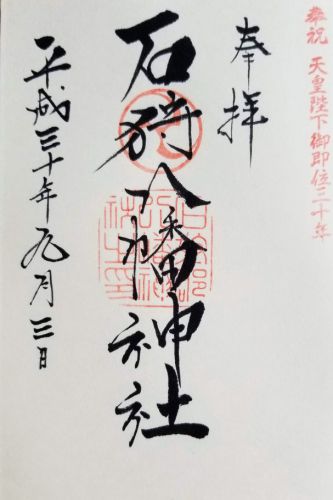 奉祝 天皇陛下御即位三十年
奉拝
石狩八幡神社
平成三十年九月三日